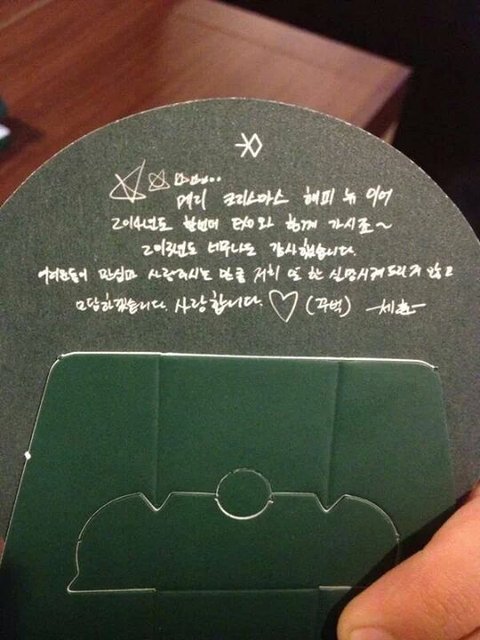 메리 크리스마스 해피 뉴 이어
2014년도 한번더 EXO와 함께 가시죠~
2013년도 너무나도 감사했습니다.
여러분들이 관심과 사랑주시는 만큼 저희 또 한 실망시켜드리지 않고
보답하겠습니다. 사랑합니다. ♡ (꾸벅) -세훈-